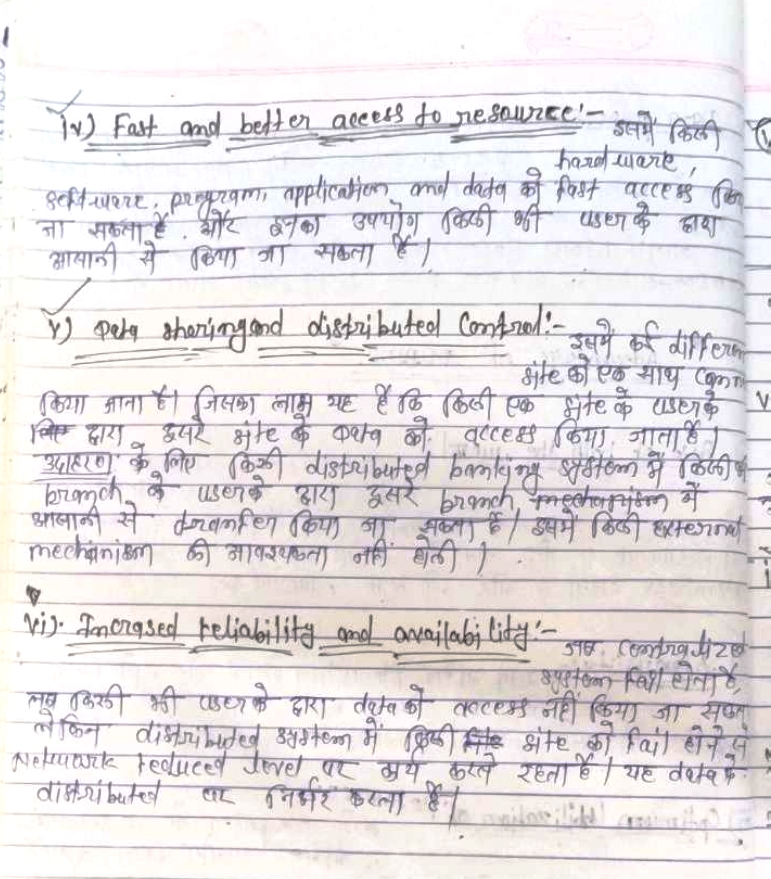 iv) Fast and better access to resource :- इसमें किसी
hardware,
software, program, application and data को fast access किया
जा सकता है . और इनका उपयोग किसी भी user के द्वारा
आसानी से किया जा सकता है |
v) Data sharing and distributed Control :-
इसमें कई different
site को एक साथ
किया जाता है| जिसका लाभ यह है कि किसी एक site के user के
द्वारा दूसरे site के data को access किया जाता है |
उदाहरण के लिए किसी distributed banking system में किसी
branch के user के द्वारा दूसरे branch mechanism में
आसानी से tranfer किया जा सकता है | इसमें किसी external
mechanism की आवश्यकता नहीं होती |
vi). Incrased reliability and availability :-
जब centralized
system fail होता है,
तब किसी भी user के द्वारा data को access नहीं किया जा सकता
लेकिन distributed system में किसी site को fail होने से
Network reduced level पर कार्य करते रहता है | यह data के
distributed पर निर्भर करता है |